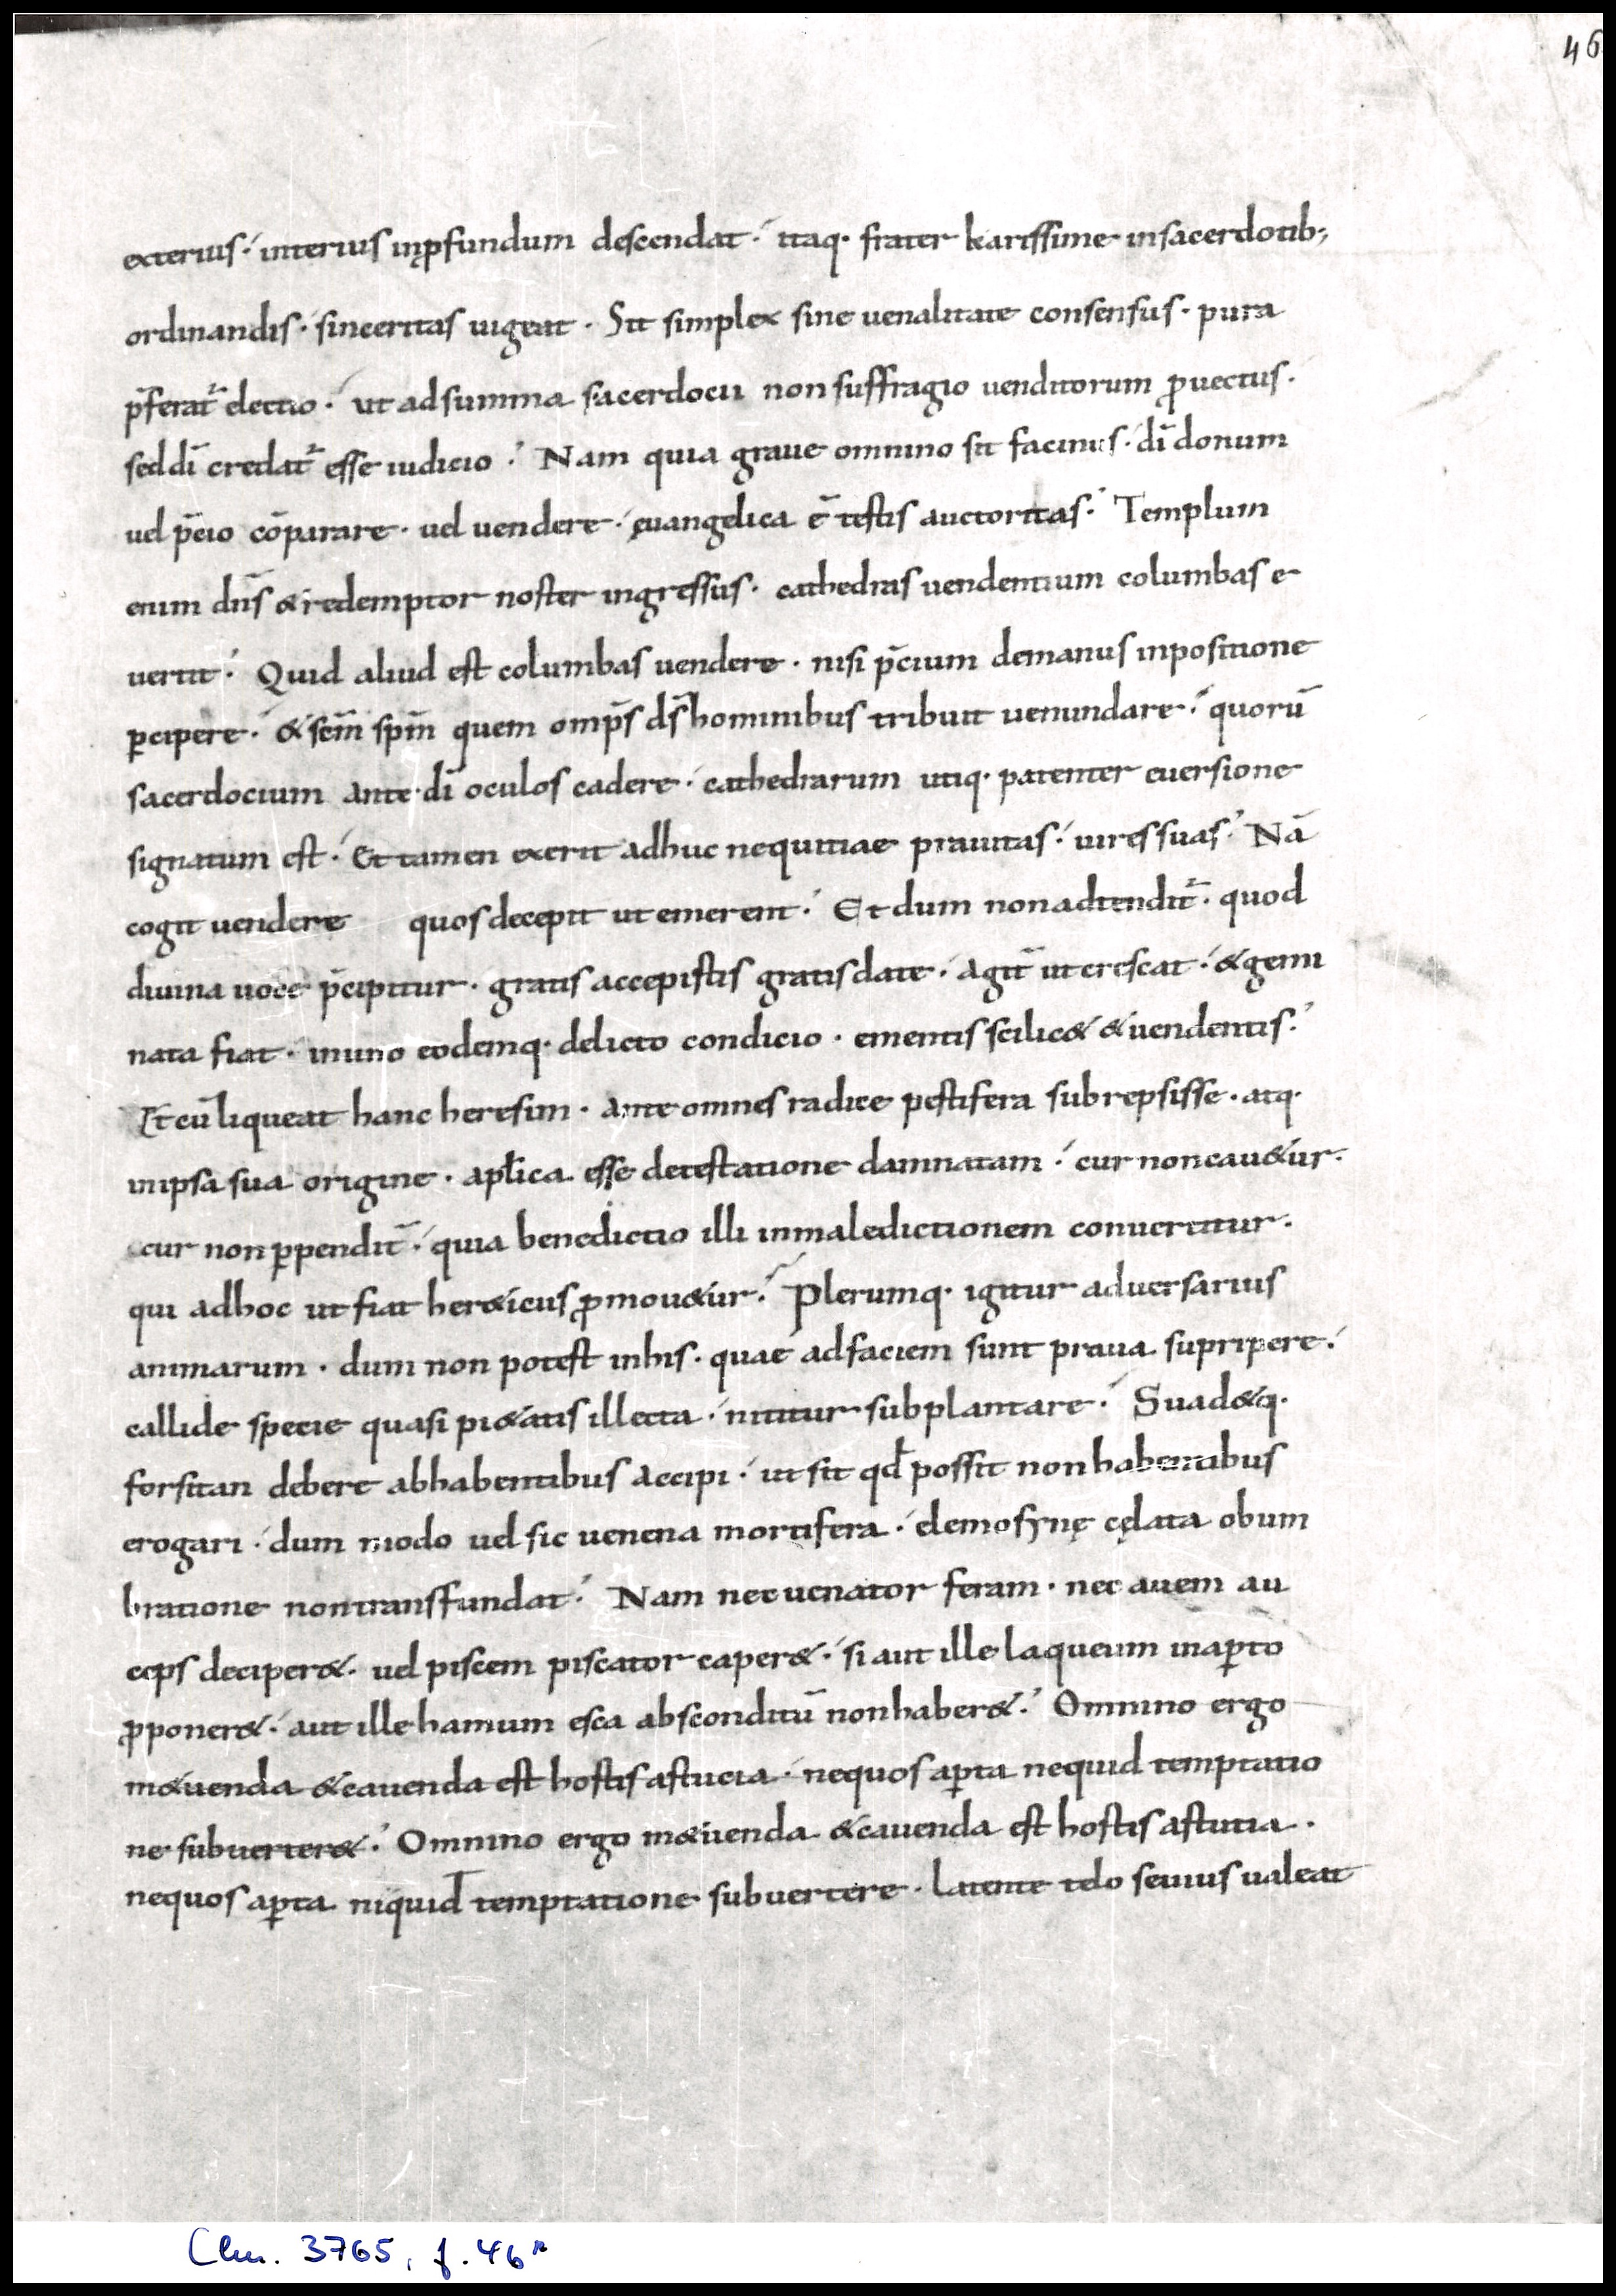 46
exterius· interius inp̱fundum descendat· itaq· frater karissime insacerdotib;
ordinandis· sinceritas uigeat· Sit simplex sine uenalitate consensus· pura
p̄feratᷣ electio· ut adsumma sacerdocii non suffragio uenditorum ꝓuectus·
sed dī credatᷣ esse iudicio· Nam quia graue omnino sit facinus· dī donum
uel p̄cio cōparare· uel uendere· ęuangelica ē testis auctoritas· Templum
enim dn̄s & redemptor noster ingressus· cathedras uendentium columbas e
uertit· Quid aliud est columbas uendere· nisi p̄cium demanus inpositione
ꝑcipere· & scm̄ spm̄ quem omp̄s ds̄ hominibus tribuit uenundare· quorū
sacerdocium ante·dī oculos cadere· cathedrarum utiq· patenter euersione
signatum est· Et tamen exerit adhuc nequitiae prauitas· uires suas· Nā
cogit uendere quos decepit ut emerent· Et dum non adtenditᷣ· quod
diuina uoce p̄cipitur· gratis accepistis gratis date· agit̄ ut crescat· & gemi
nata fiat· inuno eodemq· delicto condicio· ementis scilic& & uendentis·
Et cū liqueat hanc heresim· ante omnes radice pestifera subrepsisse· atq·
inipsa sua origine· apl̄ica esse detestatione damnatam· cur non cau&ur·
cur non ꝑpendit̄· quia benedictio illi inmaledictionem conuertitur·
qui adhoc ut fiat her&icus ꝓmou&ur· Plerumq· igitur aduersarius
animarum· dum non potest inhis· quae adfaciem sunt praua supripere·
callide specie quasi pi&atis illecta· nititur subplantare· Suad&q·
forsitan debere abhabentibus accipi· ut sit qđ possit non habentibus
erogari· dum modo uel sic uenena mortifera· elemosynę cęlata obum
bratione non transfundat· Nam nec uenator feram· nec auem au
ceps deciper&· uel piscem piscator caper&· si aut ille laqueum inaꝑto
ꝓponer&· aut ille hamum esca absconditū non haber&· Omnino ergo
m&uenda & cauenda est hostis astucia· nequos aꝑta nequid temptatio
ne subuerter&· Omnino ergo m&uenda & cauenda est hostis astutia·
nequos aꝑta niquid temptatione subuertere· latente telo seuius ualeat
Clm. 3765, f. 46ʳ